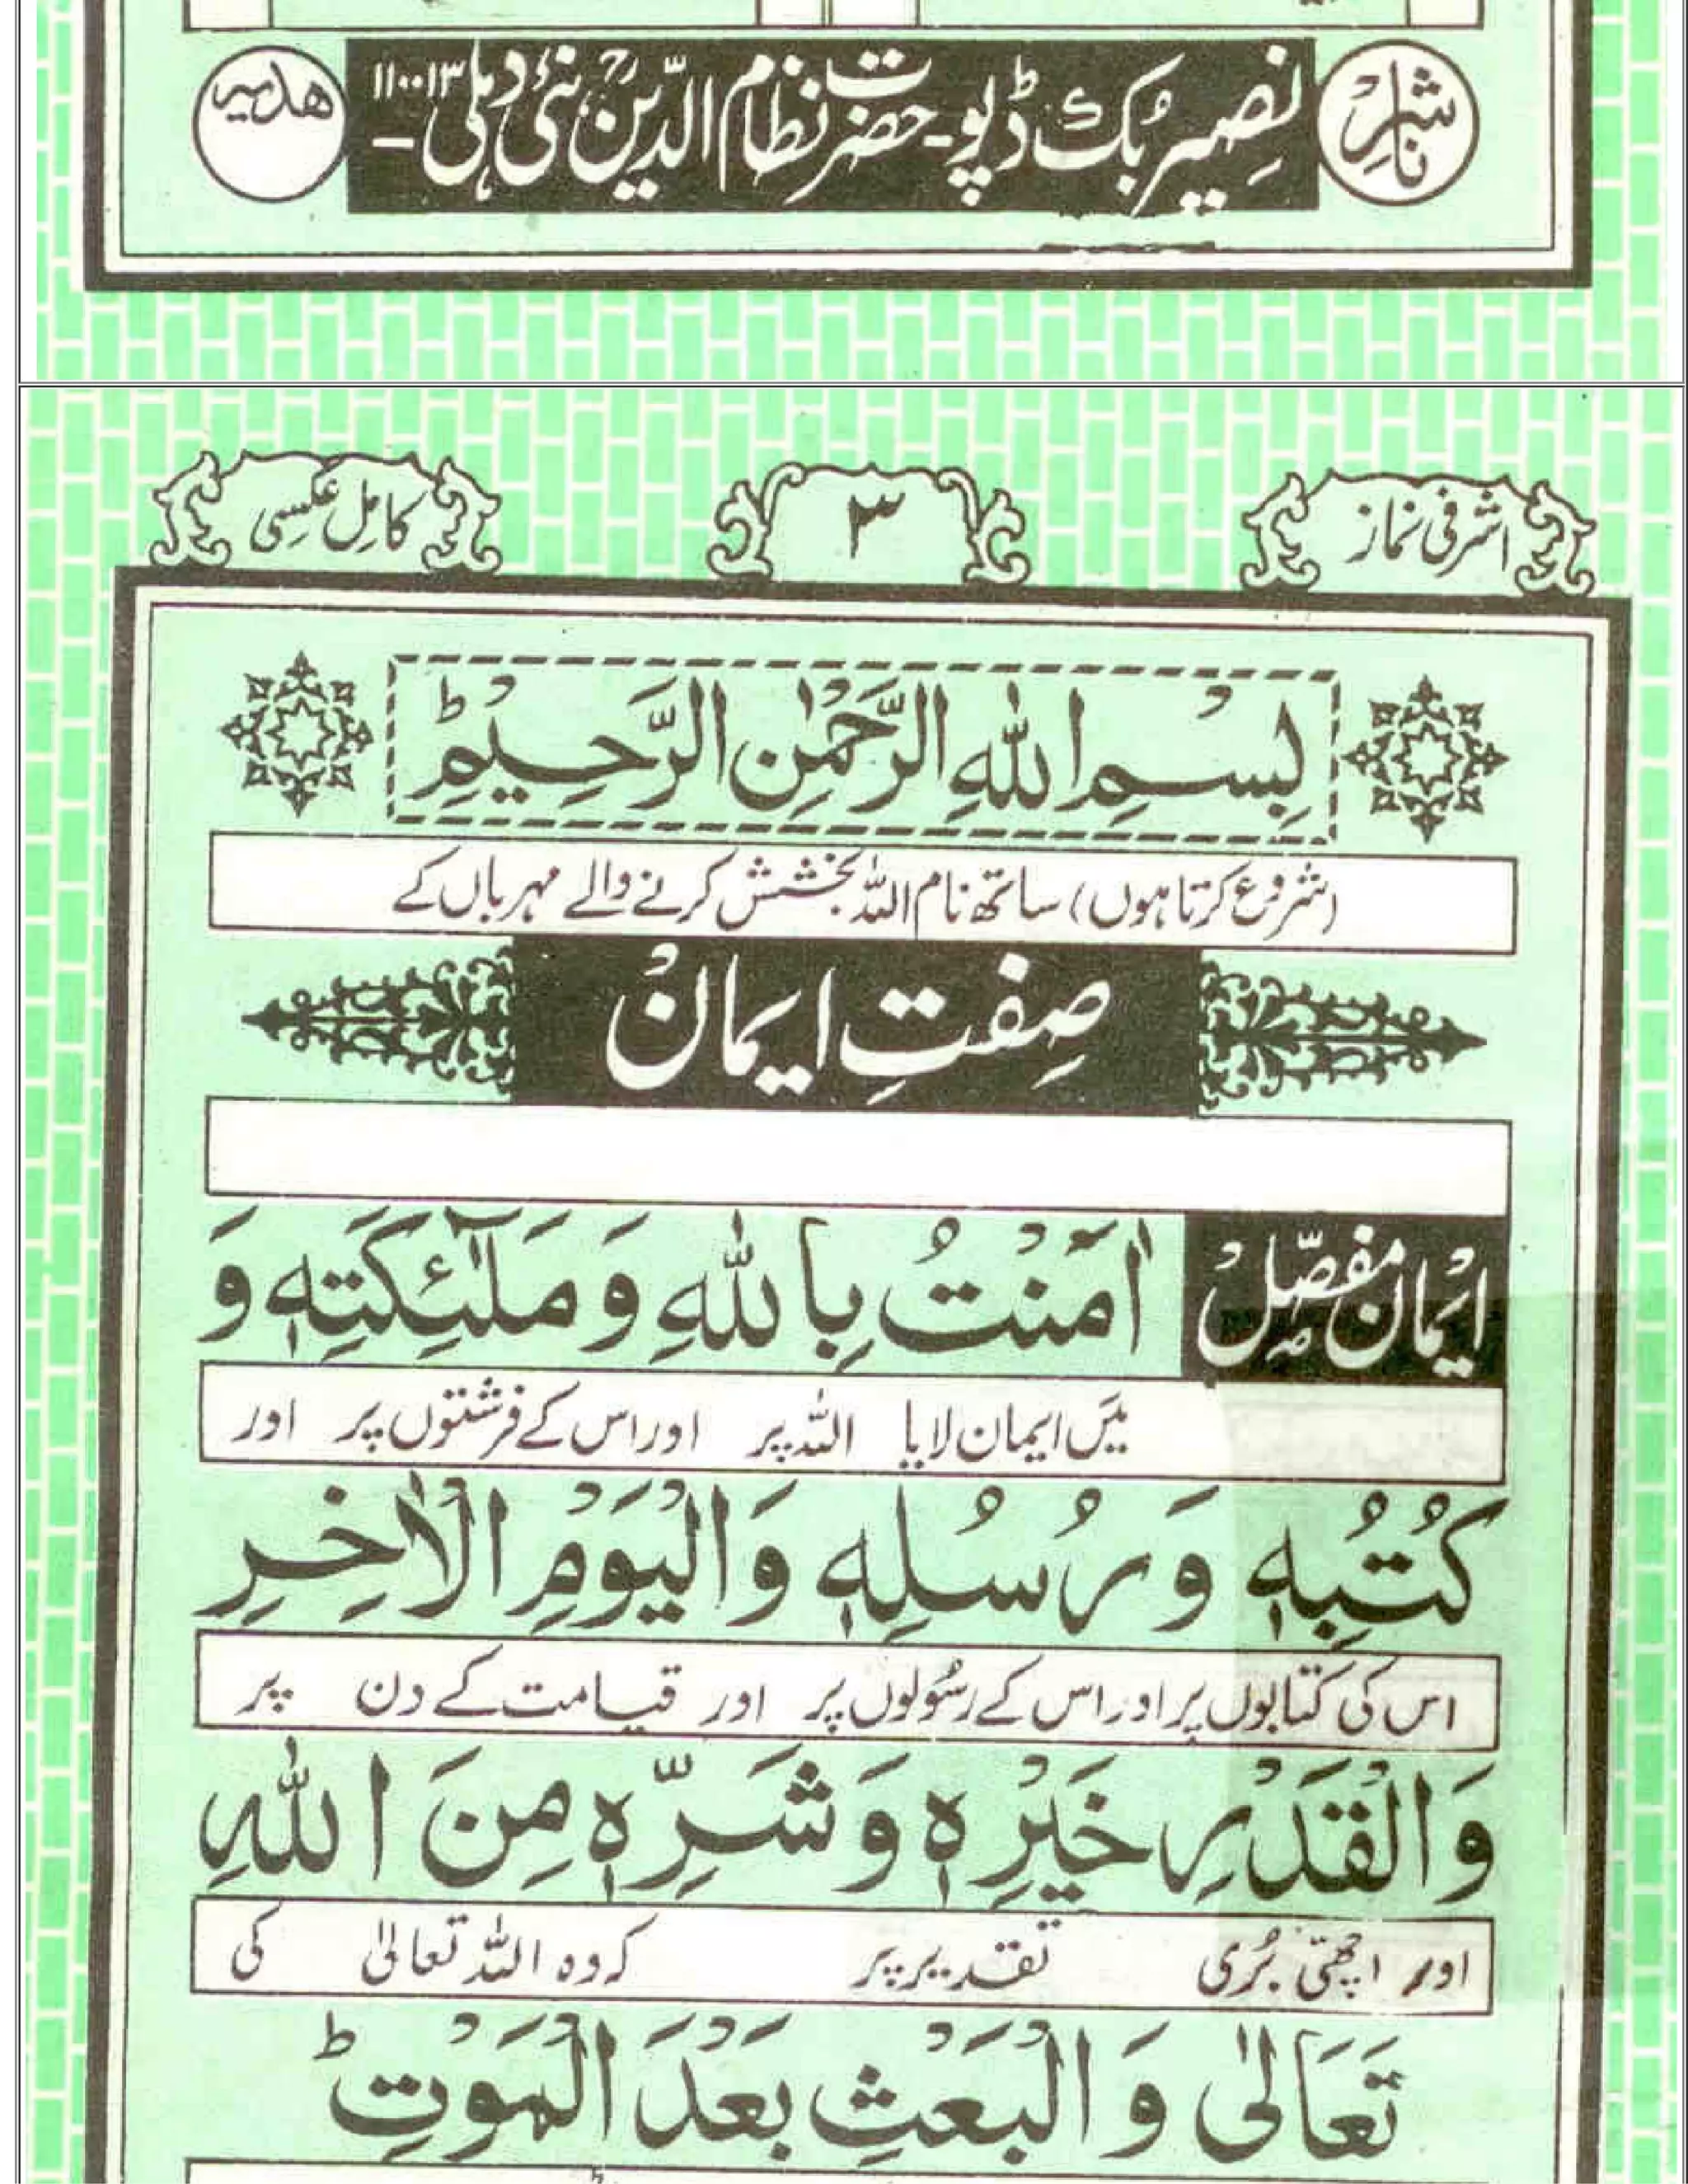 ناشر
نصیر بُک ڈپو۔ حضرت نظام الدّینؒ، نئی دہلی۔ ۱۱۰۰۱۳
ھدیہ
اشرفی نماز
۳
کامِل عکسِی
بِسْمِ اللهِ الرَّحْمٰنِ الرَّحِيْمِ ؕ
(شروع کرتا ہوں) ساتھ نام اللہ بخشش کرنے والے مہرباں کے
صِفتِ ایمانْ
ایْمان مفصّلْ
اٰمَنْتُ بِاللهِ وَ مَلٰٓئِكَتِهٖ وَ
میَں ایمان لایا اللہ پر اور اس کے فرشتوں پر اور
كُتُبِهٖ وَ رُسُلِهٖ وَالْيَوْمِ الْاٰخِرِ
اس کی کتابوں پر اور اس کے رسُولوں پر اور قیامت کے دن پر
وَالْقَدْرِ خَيْرِهٖ وَ شَرِّهٖ مِنَ اللهِ
اور اچھّی بُری تقدیر پر کہ وہ اللہ تعالیٰ کی
تَعَالٰى وَ الْبَعْثِ بَعْدَ الْمَوْتِ ؕ